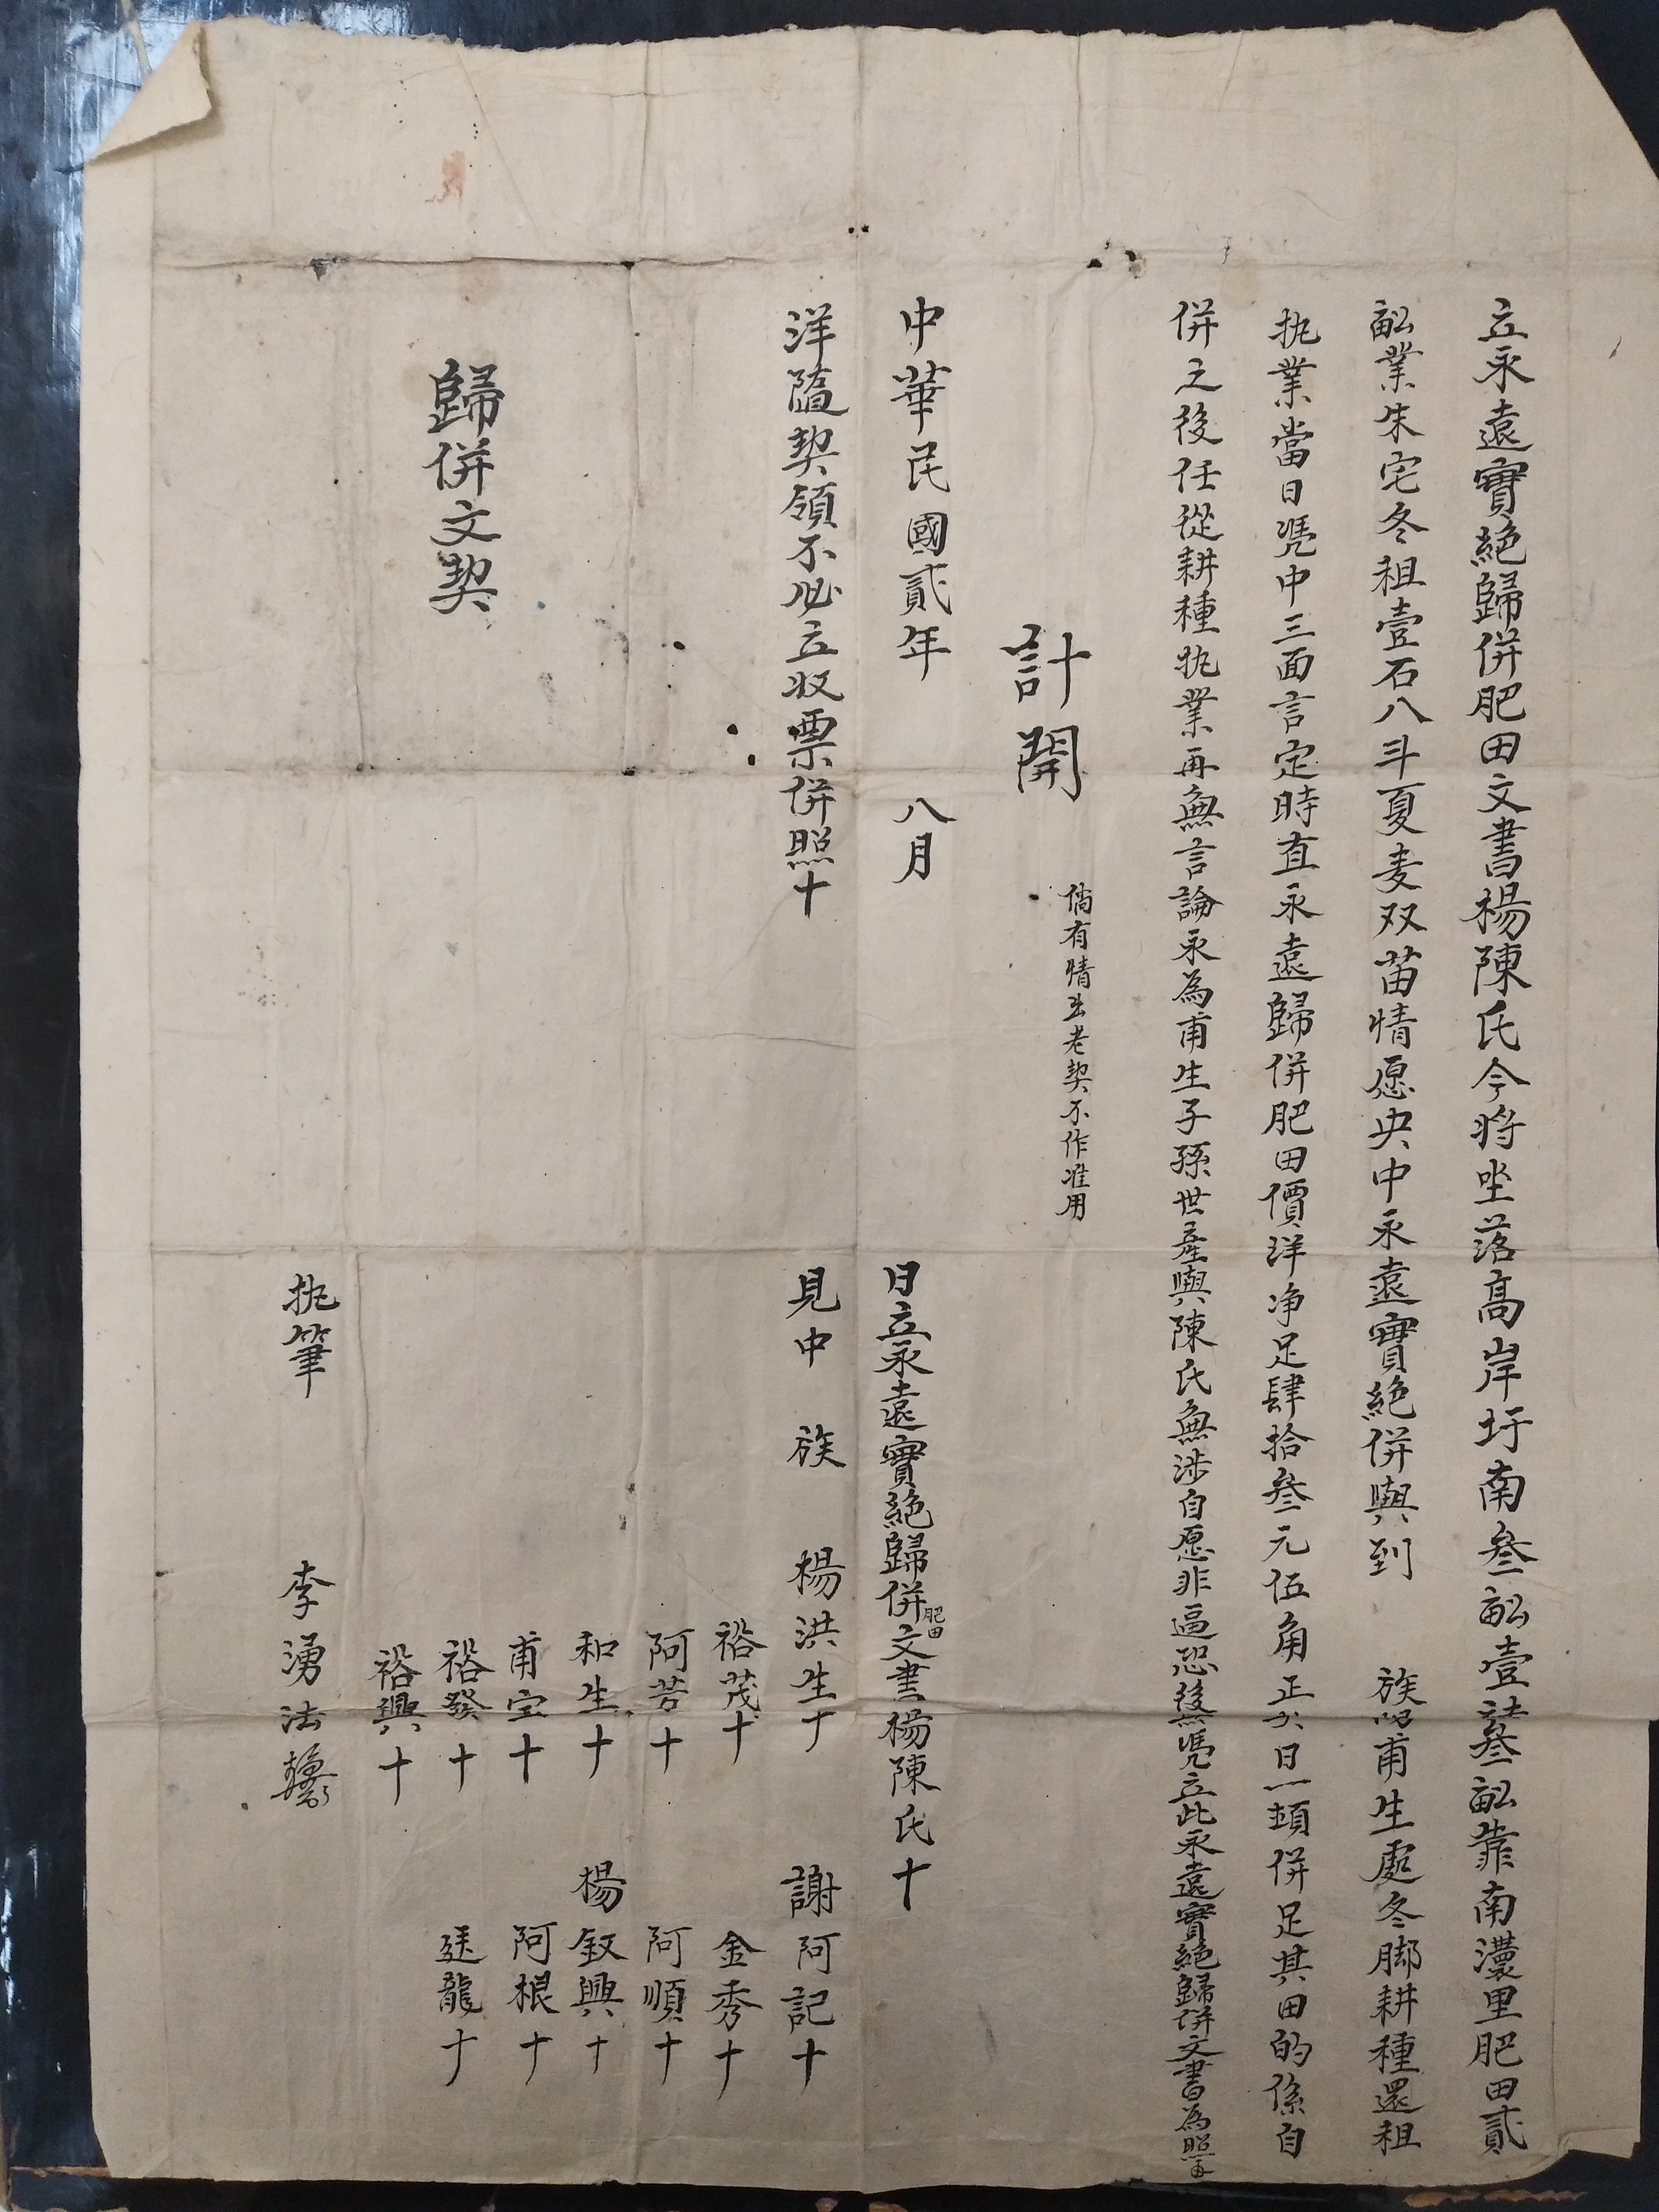 立永遠實絕歸併肥田文書楊陳氏今將坐落高岸圩南叄畝壹叄畝靠南灢里肥田貳
畝業朱宅冬租壹石八斗夏麦双苗情愿央中永遠實絕併與到 族 甫生處冬脚耕種還租
执業當日憑中三面言定時直永遠歸併肥田價洋净足肆拾叄元伍角正 日一頓併足其田的係自
併之後任從耕種执業再無言論永為甫生子孫世產與陳氏無涉自愿非逼恐後無憑立此永遠實絕歸併文書為照
計開
倘有情出老契不作准用
中華民國貳年 八月 日立永遠實絕歸併肥田文書楊陳氏十
洋隨契領不必立收票併照十
見中 族 楊洪生十 謝阿記十
裕茂十 金秀十
阿芳十 阿順十
和生十 楊釵興十
甫宝十 阿根十
裕發十 廷龍十
裕興十
歸併文契
执筆 李湧法